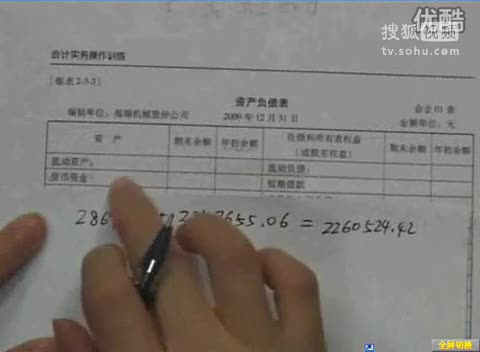 优酷
搜狐视频
tv.sohu.com
会计实务操作训练
资产负债表
会企 01 表
2009 年 12 月 31 日
金额单位：元
资 产 期末余额 年初余额 负债和所有者权益 期末余额 年初余额
（或股东权益）
流动资产： 流动负债：
货币资金 短期借款
655.06 = 2260524.42
全屏切换